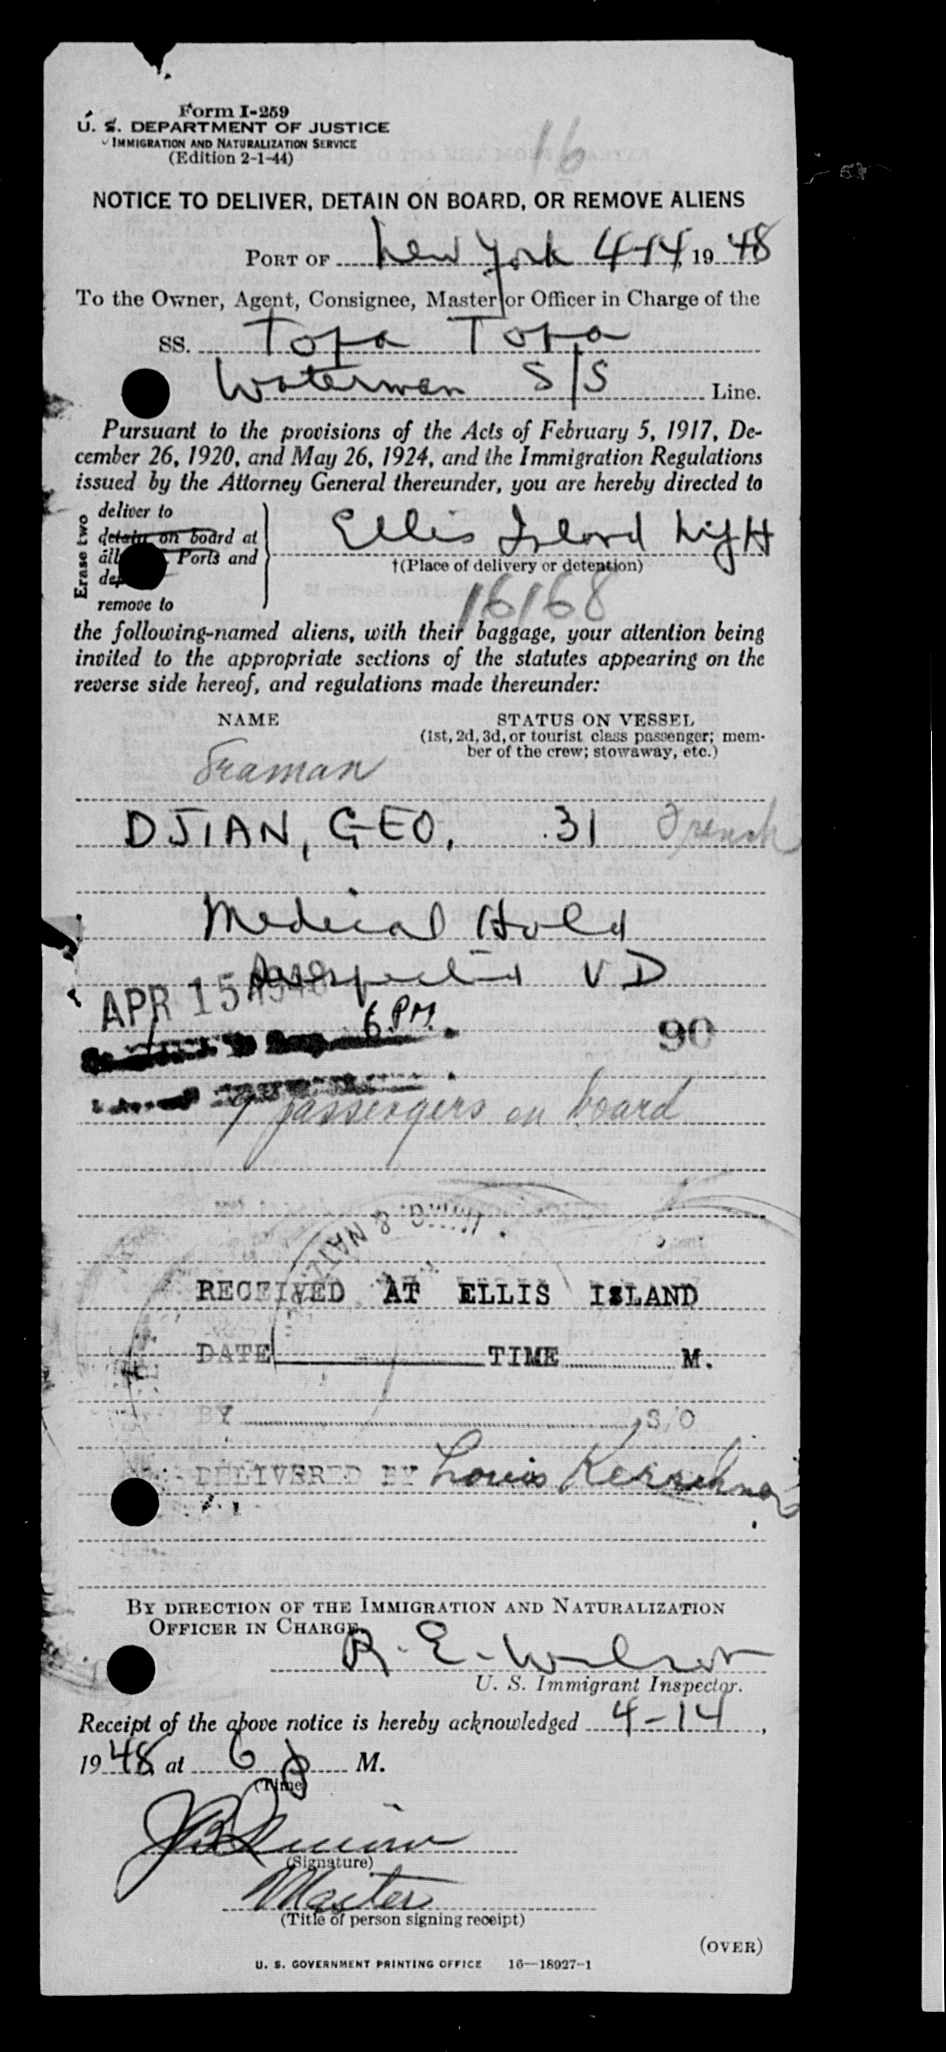 Form I-259
U. S. DEPARTMENT OF JUSTICE
IMMIGRATION AND NATURALIZATION SERVICE
(Edition 2-1-44)
16
NOTICE TO DELIVER, DETAIN ON BOARD, OR REMOVE ALIENS
PORT OF New York 4-14, 1948
To the Owner, Agent, Consignee, Master or Officer in Charge of the
SS. Topa Topa
Waterman S/S Line.
Pursuant to the provisions of the Acts of February 5, 1917, De-
cember 26, 1920, and May 26, 1924, and the Immigration Regulations
issued by the Attorney General thereunder, you are hereby directed to
Erase two
deliver to
detain on board at
all Ports and
remove to
Ellis Island
†(Place of delivery or detention)
16168
the following-named aliens, with their baggage, your attention being
invited to the appropriate sections of the statutes appearing on the
reverse side hereof, and regulations made thereunder:
NAME
STATUS ON VESSEL
(1st, 2d, 3d, or tourist class passenger; mem-
ber of the crew; stowaway, etc.)
Seaman
DJIAN, GEO, 31 French
Medical Hold
Suspected VD
APR 15 1948
6 P.M.
90
9 passengers on board
IMMIG. & NAT
RECEIVED AT ELLIS ISLAND
DATE TIME M.
BY S/O
DELIVERED BY Louis Kerschner
BY DIRECTION OF THE IMMIGRATION AND NATURALIZATION
OFFICER IN CHARGE
R. E. Wilson
U. S. Immigrant Inspector.
Receipt of the above notice is hereby acknowledged 4-14,
1948, at 6 p M.
(Time)
(Signature)
Master
(Title of person signing receipt)
(OVER)
U. S. GOVERNMENT PRINTING OFFICE 16—18927-1